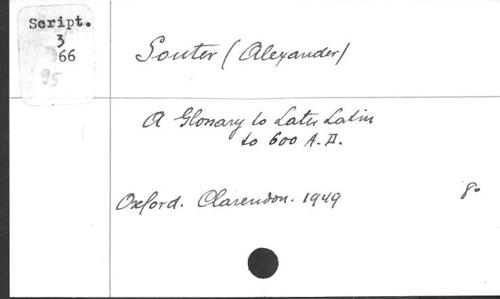 Script.
3
66
95
Souter (Alexander)
A Glossary to Later Latin
to 600 A.D.
Oxford. Clarendon. 1949 8º